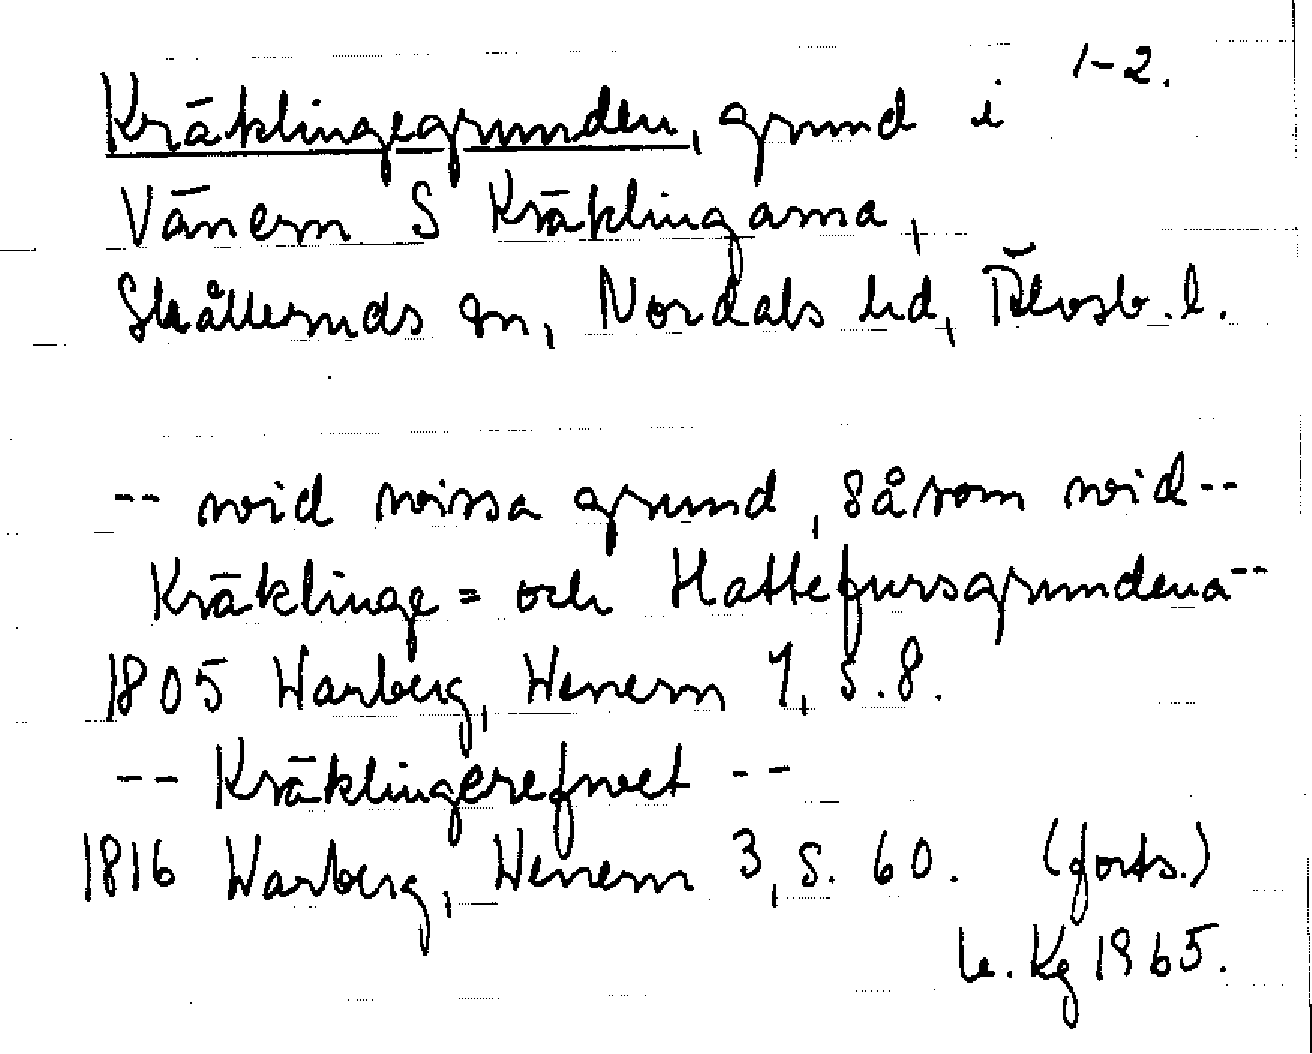 1-2.
Kräklingegrunden, grund i
Vänern S Kräklingarna,
Skålleruds sn, Nordals hd, Älvsb. l.
-- wid wissa grund, såsom wid --
Kräklinge= och Hattefursgrundena --
1805 Warberg, Wenern 1, s. 8.
-- Kräklingerefwet --
1816 Warberg, Wenern 3, s. 60. (forts.)
Kg 1965.